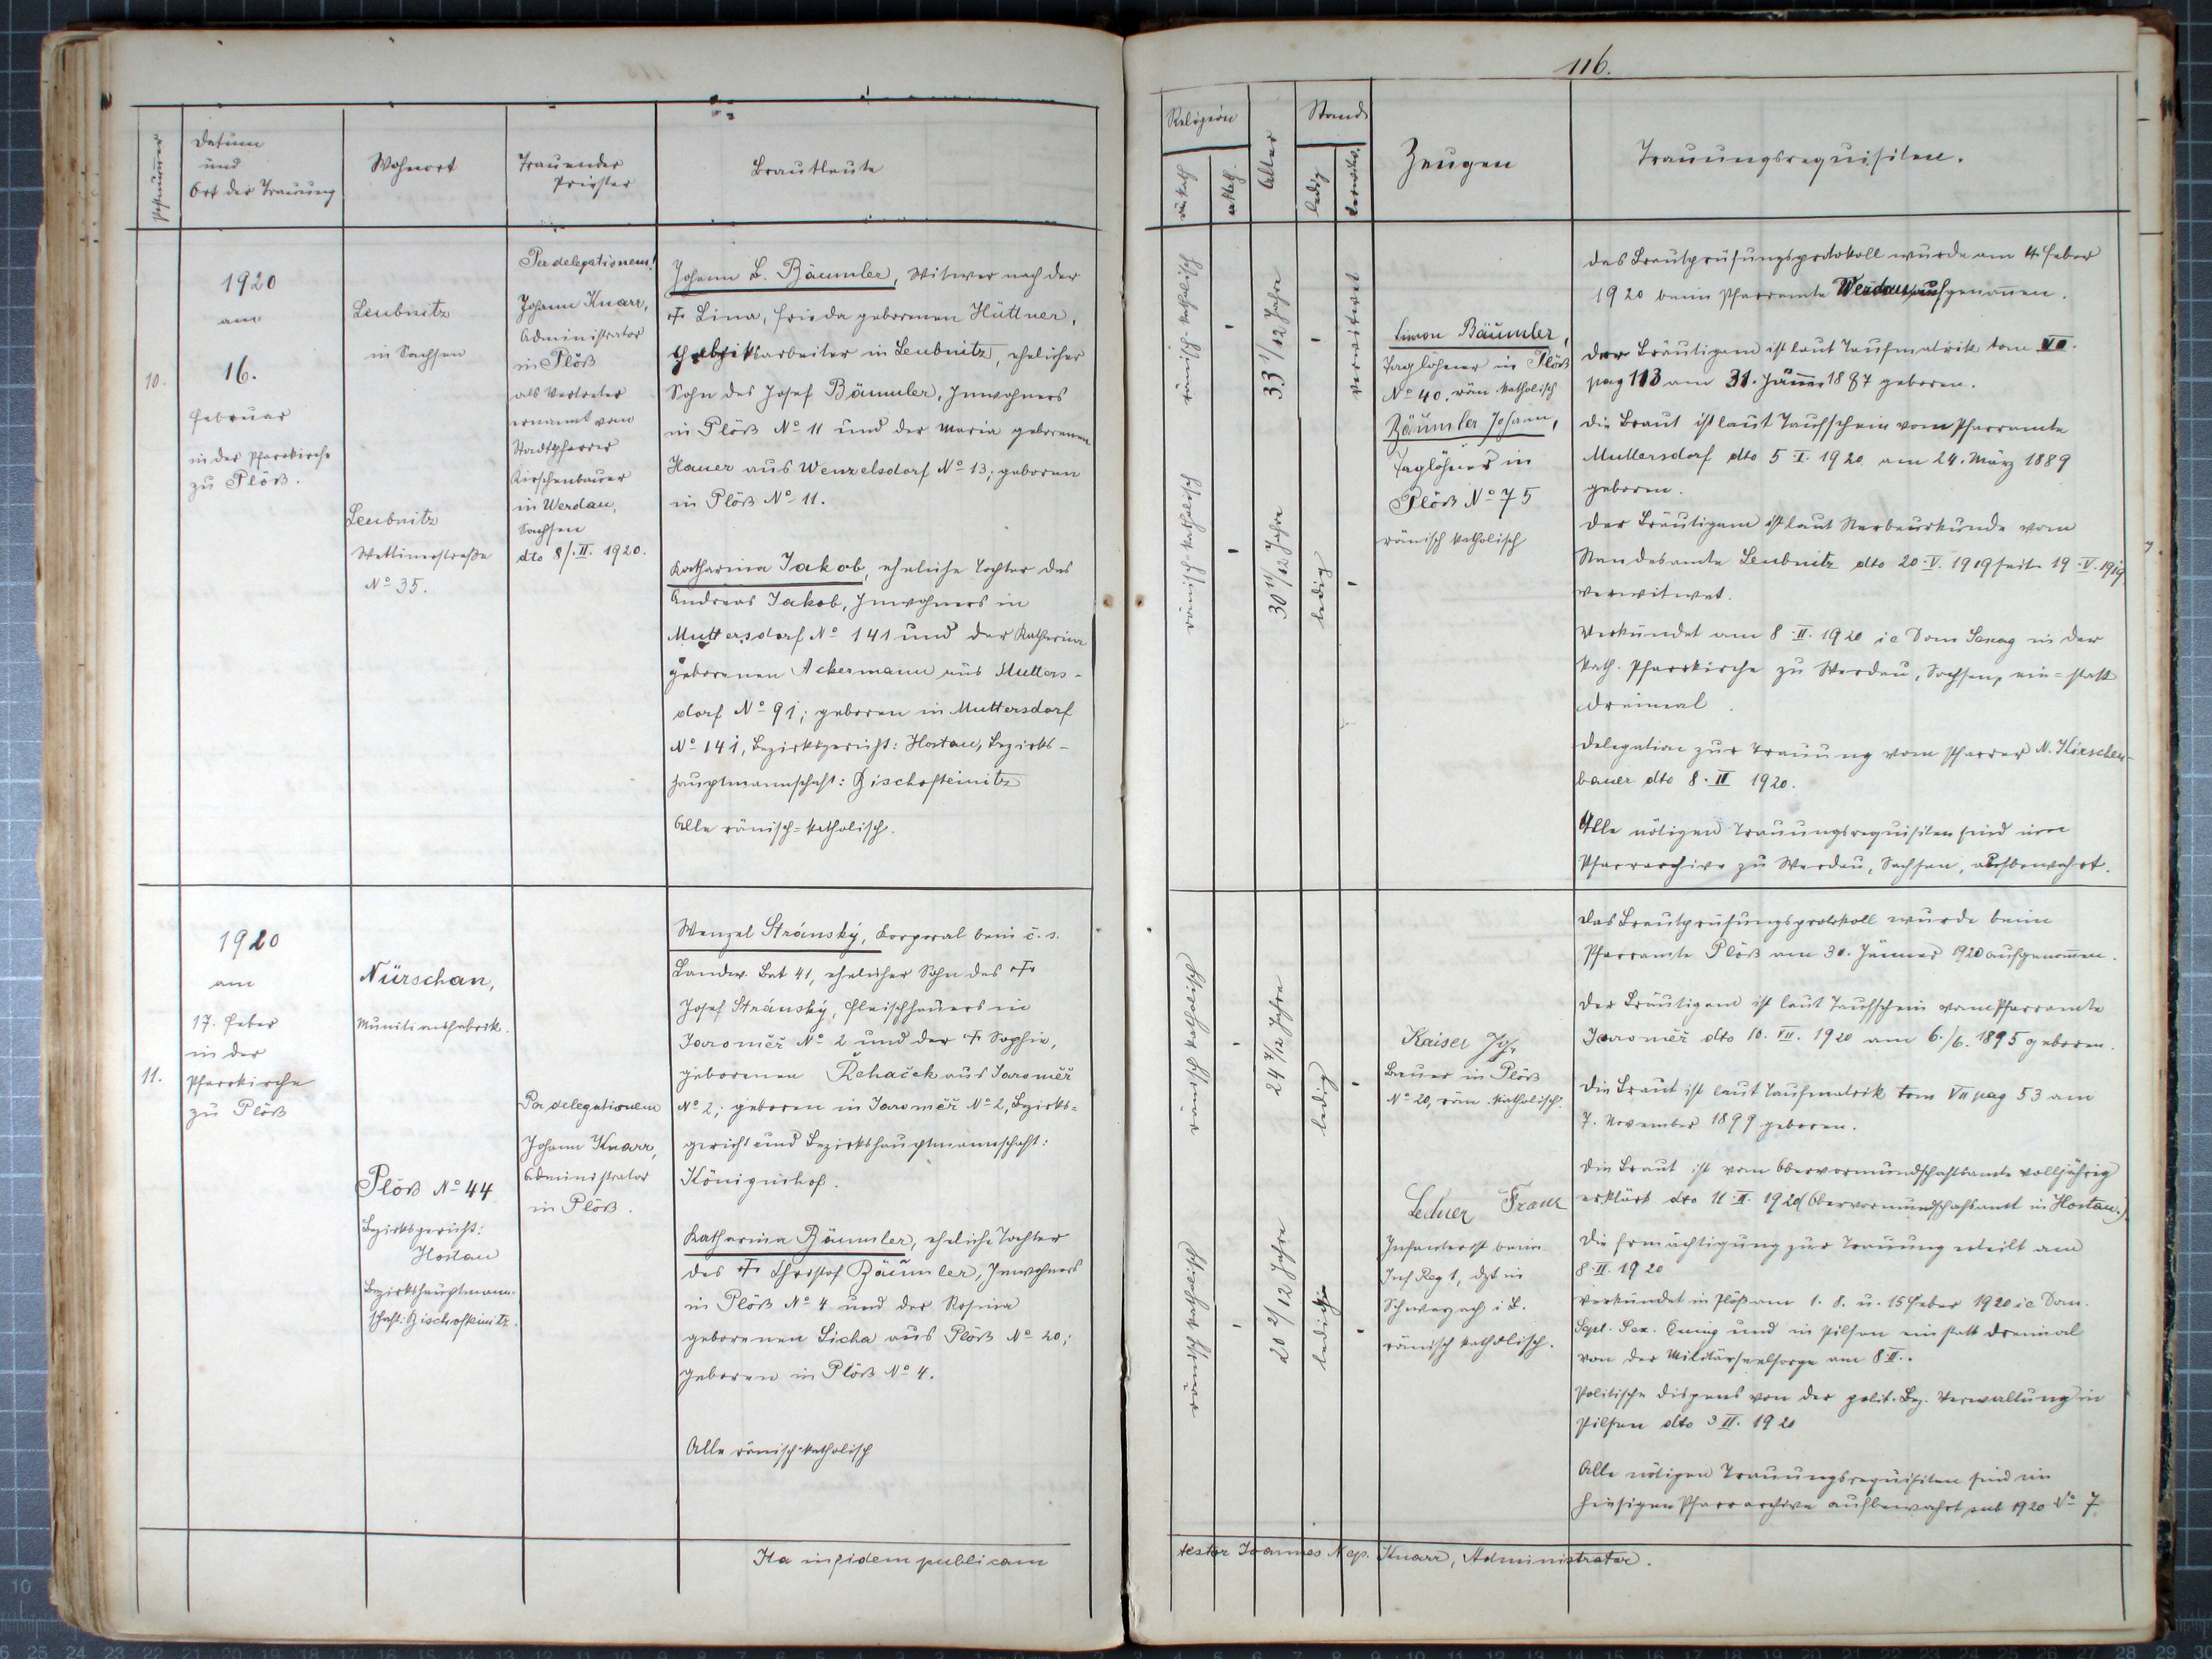 116.
Postnummer
Datum
und
Ort der Trauung
Wohnort
Trauender
Priester
Brautleute
Religion
röm. kath.
akath.
Alter
Stand
ledig
verwitw.
Zeugen
Trauungsrequisiten.
10.
1920
am
16.
Februar
in der Pfarrkirche
zu Plöß.
Leubnitz
in Sachsen
Leubnitz
Wettinerstraße
No 35.
Per delegationem!
Johann Knarr,
Administrator
in Plöß
als Vertreter
ernannt vom
Stadtpfarrer
Kirschenbauer
in Werdau,
Sachsen
dto 8/.II. 1920.
Johann B. Bäumler, Witwer nach der
† Lina, Frieda geborenen Hüttner,
Fabriksarbeiter in Leubnitz, ehelicher
Sohn des Josef Bäumler, Inwohners
in Plöß No 11 und der Maria geborenen
Hauer aus Wenzelsdorf No 13; geboren
in Plöß No 11.
Katharina Jakob, eheliche Tochter des
Andreas Jakob, Inwohners in
Muttersdorf No 141 und der Katharina
geborenen Ackermann aus Mutters-
dorf No 91; geboren in Muttersdorf
No 141, Bezirksgericht: Hostau, Bezirks-
hauptmannschaft: Bischofteinitz
Alle römisch=katholisch.
römisch-katholisch
33 1/12 Jahre
verwitwet
römisch katholisch
30 11/12 Jahre
ledig
Simon Bäumler,
Taglöhner in Plöß
No 40. röm. katholisch
Bäumler Johann,
Taglöhner in
Plöß No 75
römisch katholisch
Das Brautprüfungsprotokoll wurde am 4. Feber
1920 beim Pfarramte Werdau aufgenommen.
Der Bräutigam ist laut Taufmatrik tom VII.
pag 113 am 31. Jänner 1887 geboren.
Die Braut ist laut Taufschein vom Pfarramte
Muttersdorf dto 5.I. 1920 am 24. März 1889
geboren.
Der Bräutigam ist laut Sterbeurkunde vom
Standesamte Leubnitz dto 20.V. 1919 seit 19.V. 1919
verwitwet.
Verkündet am 8.II. 1920 ie Dom Sexag in der
kath. Pfarrkirche zu Werdau, Sachsen, ein=statt
dreimal.
Delegation zur Trauung vom Pfarrer N. Kirschen-
bauer dto 8.II 1920.
Alle nötigen Trauungsrequisiten sind im
Pfarrarchive zu Werdau, Sachsen, aufbewahrt.
11.
1920
am
17. Feber
in der
Pfarrkirche
zu Plöß
Nürschan,
Munitionsfabrik.
Plöß No 44
Bezirksgericht:
Hostau
Bezirkshauptmann-
schaft: Bischofteinitz.
Per delegationem
Johann Knarr,
Administrator
in Plöß.
Wenzel Stránský, Korporal beim č. s.
Landw. Bat 41, ehelicher Sohn des †
Josef Stránský, Fleischhauers in
Jaroměř No 2 und der † Sophie,
geborenen Řehaček aus Jaroměř
No 2; geboren in Jaroměř No 2, Bezirks=
gericht und Bezirkshauptmannschaft:
Königinhof.
Katharina Bäumler, eheliche Tochter
des † Christof Bäumler, Inwohners
in Plöß No 4 und der Rosina
geborenen Licha aus Plöß No 20;
geboren in Plöß No 4.
Alle römisch-katholisch
römisch katholisch
24 7/12 Jahre
ledig
römisch katholisch
20 2/12 Jahre
ledig
Kaiser Joh.
Bauer in Plöß
No 20, röm. katholisch.
Lechner Franz
Infanterist beim
Inf Reg 1, dzt in
Schwarzach i. B.
römisch katholisch.
Das Brautprüfungsprotokoll wurde beim
Pfarramte Plöß am 31. Jänner 1920 aufgenommen.
Der Bräutigam ist laut Taufschein vom Pfarramte
Jaroměř dto 10. VII. 1920 am 6./6. 1895 geboren.
Die Braut ist laut Taufmatrik tom VII pag 53 am
7. November 1899 geboren.
Die Braut ist vom Obervormundschaftsamte volljährig
erklärt dto 11.II. 1920 (Obervormundschaftsamt in Hostau.)
Die Ermächtigung zur Trauung erteilt am
8.II. 1920
Verkündet in Plöß am 1. 8. u. 15 Feber 1920 ie Dom.
Sept. Sex. Quinq und in Pilsen ein statt dreimal
von der Militärseelsorge am 8.II..
Politische Dispens von der polit. Bez. Verwaltung in
Pilsen dto 3 II. 1920
Alle nötigen Trauungsrequisiten sind im
hiesigen Pfarrarchive aufbewahrt sub 1920 No 7
Ita in fidem publicam
testor Joannes Nep. Knarr, Administrator.